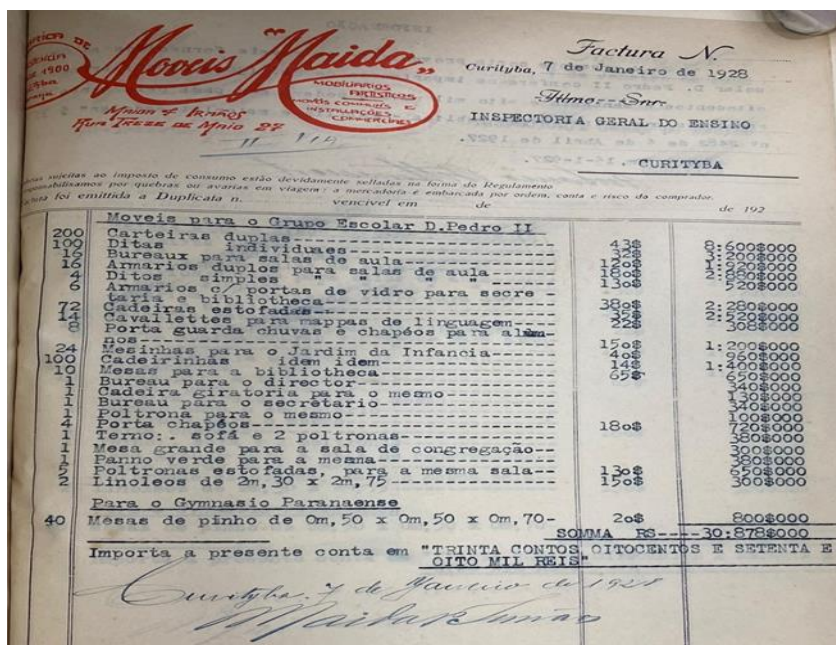 Moveis "Maida"
DE 1900
MOBILIARIOS
ARTISTICOS
MOVEIS COMMUNS E
INSTALLAÇÕES
COMMERCIAES
Maida & Irmãos
Rua Treze de Maio 27
Factura N.
Curityba, 7 de Janeiro de 1928
Illmo. Snr.
INSPECTORIA GERAL DO ENSINO
CURITYBA
sujeitas ao imposto de consumo estão devidamente selladas na forma do Regulamento
responsabilisamos por quebras ou avarias em viagem; a mercadoria é embarcada por ordem, conta e risco do comprador.
foi emittida a Duplicata n. vencivel em de de 192
Moveis para o Grupo Escolar D.Pedro II
200 Carteiras duplas 43$ 8:600$000
100 Ditas individuaes 32$ 3:200$000
16 Bureaux para salas de aula
16 Armarios duplos para salas de aula
4 Ditos simples " " " 130$ 520$000
6 Armarios c/ portas de vidro para secre-
taria e bibliotheca 380$ 2:280$000
72 Cadeiras estofadas 35$ 2:520$000
14 Cavallettes para mappas de linguagem 22$ 308$000
8 Porta guarda chuvas e chapéos para alum-
nos 150$ 1:200$000
24 Mesinhas para o Jardim da Infancia 40$ 960$000
100 Cadeirinhas idem idem 14$ 1:400$000
10 Mesas para a bibliotheca 65$ 650$000
1 Bureau para o director 340$000
1 Cadeira giratoria para o mesmo 130$000
1 Bureau para o secretario 340$000
1 Poltrona para o mesmo 100$000
4 Porta chapéos 180$ 720$000
1 Terno: . sofá e 2 poltronas 380$000
1 Mesa grande para a sala de congregação
1 Panno verde para a mesma
5 Poltronas estofadas, para a mesma sala 130$ 650$000
2 Linoleos de 2m,30 x 2m,75 150$ 300$000
Para o Gymnasio Paranaense
40 Mesas de pinho de 0m,50 x 0m,50 x 0m,70- 20$ 800$000
SOMMA RS----30:878$000
Importa a presente conta em "TRINTA CONTOS OITOCENTOS E SETENTA E
OITO MIL REIS"
Curityba. 7 de Janeiro de 1928
Maida & Irmãos